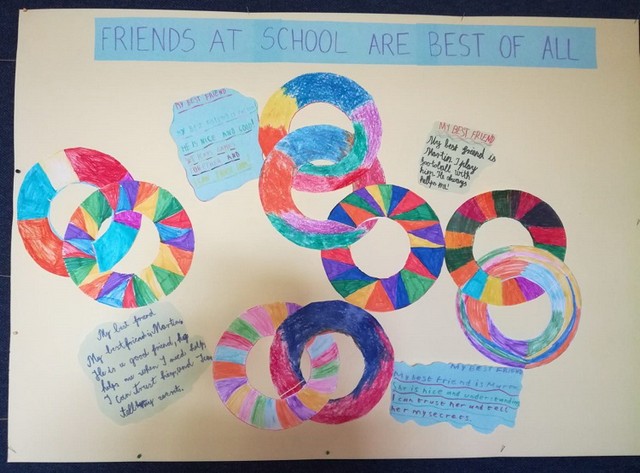 FRIENDS AT SCHOOL ARE BEST OF ALL
MY BEST FRIEND
MY BEST
HE IS NICE AND
AND
MY BEST FRIEND
My best friend is
Martin. I play
football with
him. He always
helps me!
My best friend
My best friend is Martin.
He is a good friend, he
helps me when I need help.
I can trust him and
tell my
MY BEST FRIEND
My best friend is
She is nice and understanding
I can trust her and tell
her my secrets.